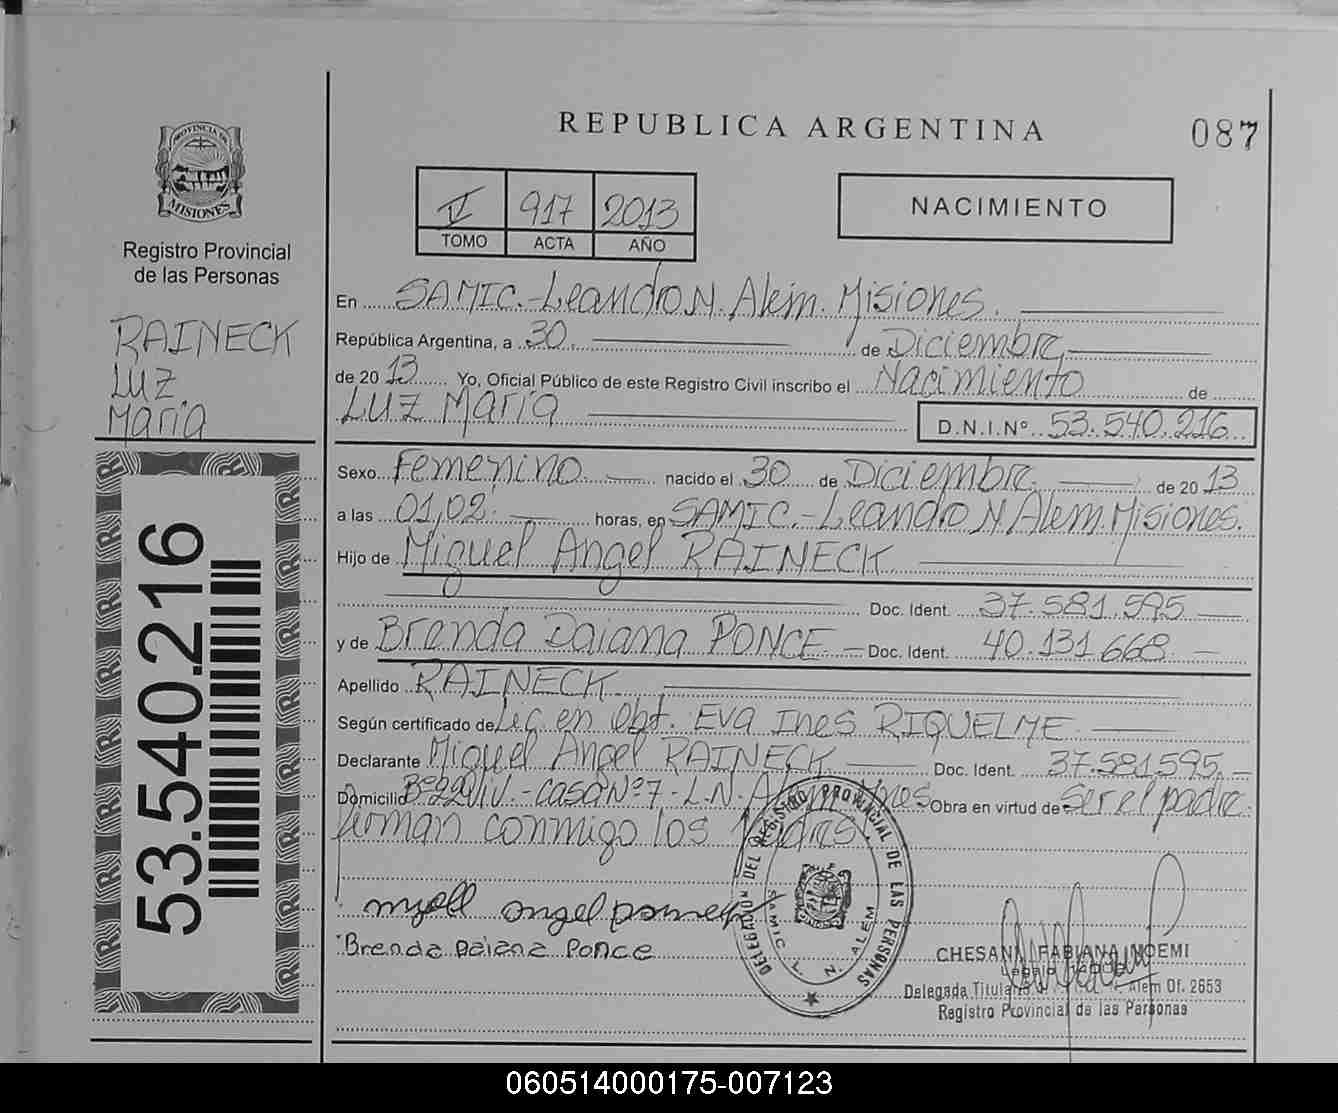 REPUBLICA ARGENTINA
087
PROVINCIA DE
MISIONES
Registro Provincial
de las Personas
RAINECK
LUZ
María
53.540.216
IV 917 2013
TOMO ACTA AÑO
NACIMIENTO
En SAMIC.-Leandro N. Alem. Misiones.
República Argentina, a 30. de Diciembre
de 2013 Yo, Oficial Público de este Registro Civil inscribo el Nacimiento de
LUZ María D.N.I.Nº 53.540.216
Sexo Femenino nacido el 30 de Diciembre de 2013
a las 01,02 horas, en SAMIC.-Leandro N. Alem. Misiones.
Hijo de Miguel Angel RAINECK
Doc. Ident. 37.581.595
y de Brenda Daiana PONCE - Doc. Ident. 40.131.668
Apellido RAINECK
Según certificado de Lic. en Obt. Eva Ines RIQUELME
Declarante Miguel Angel RAINECK Doc. Ident. 37.581.595
Domicilio Bº 22 Viv.-casa Nº7-L.N. Obra en virtud de ser el padre.
firman conmigo los Padres
angel
Brenda Daiana Ponce
DELEGACION DEL REGISTRO PROVINCIAL DE LAS PERSONAS
SAMIC L. N. ALEM
CHESANI FABIANA NOEMI
Delegada Titular Alem Of. 2653
Registro Provincial de las Personas
060514000175-007123